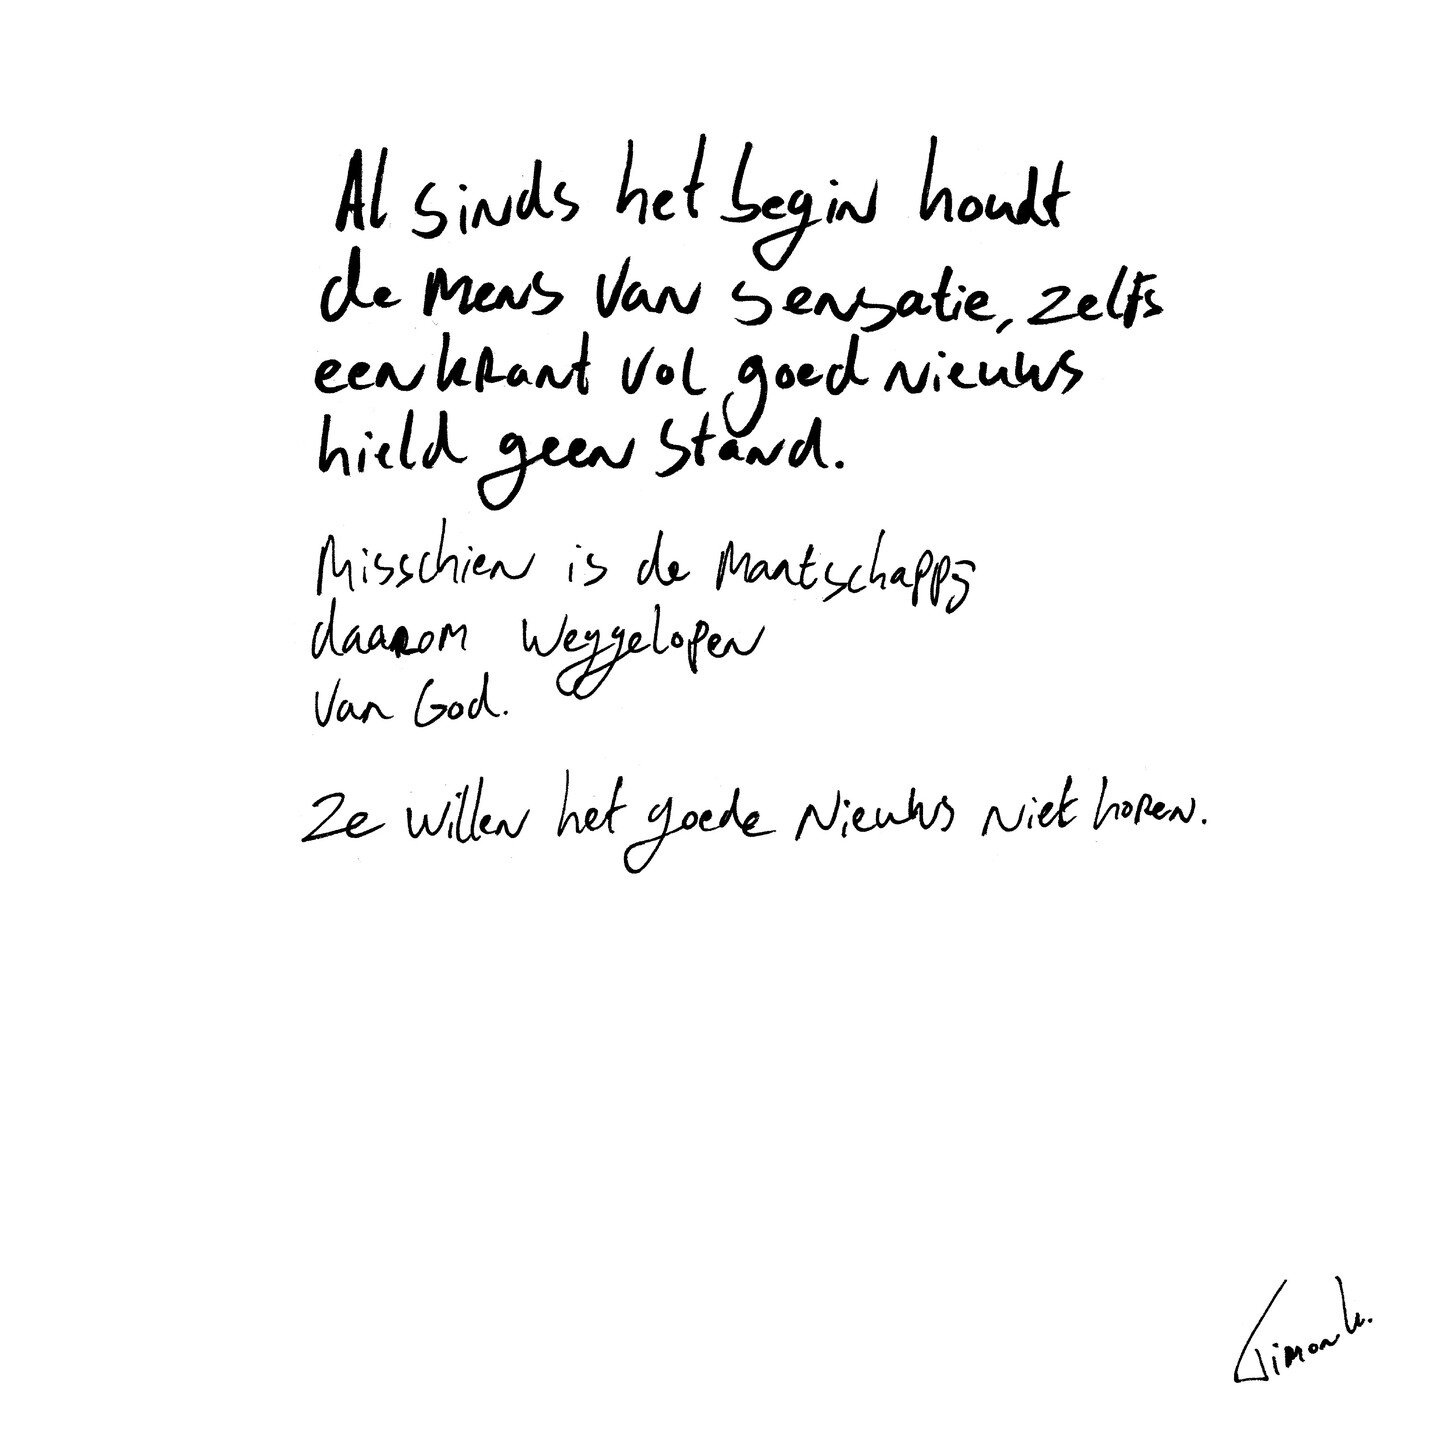 Al sinds het begin houdt
de mens van sensatie, zelfs
een krant vol goed nieuws
hield geen stand.
Misschien is de maatschappij
daarom weggelopen
van God.
Ze willen het goede nieuws niet horen.